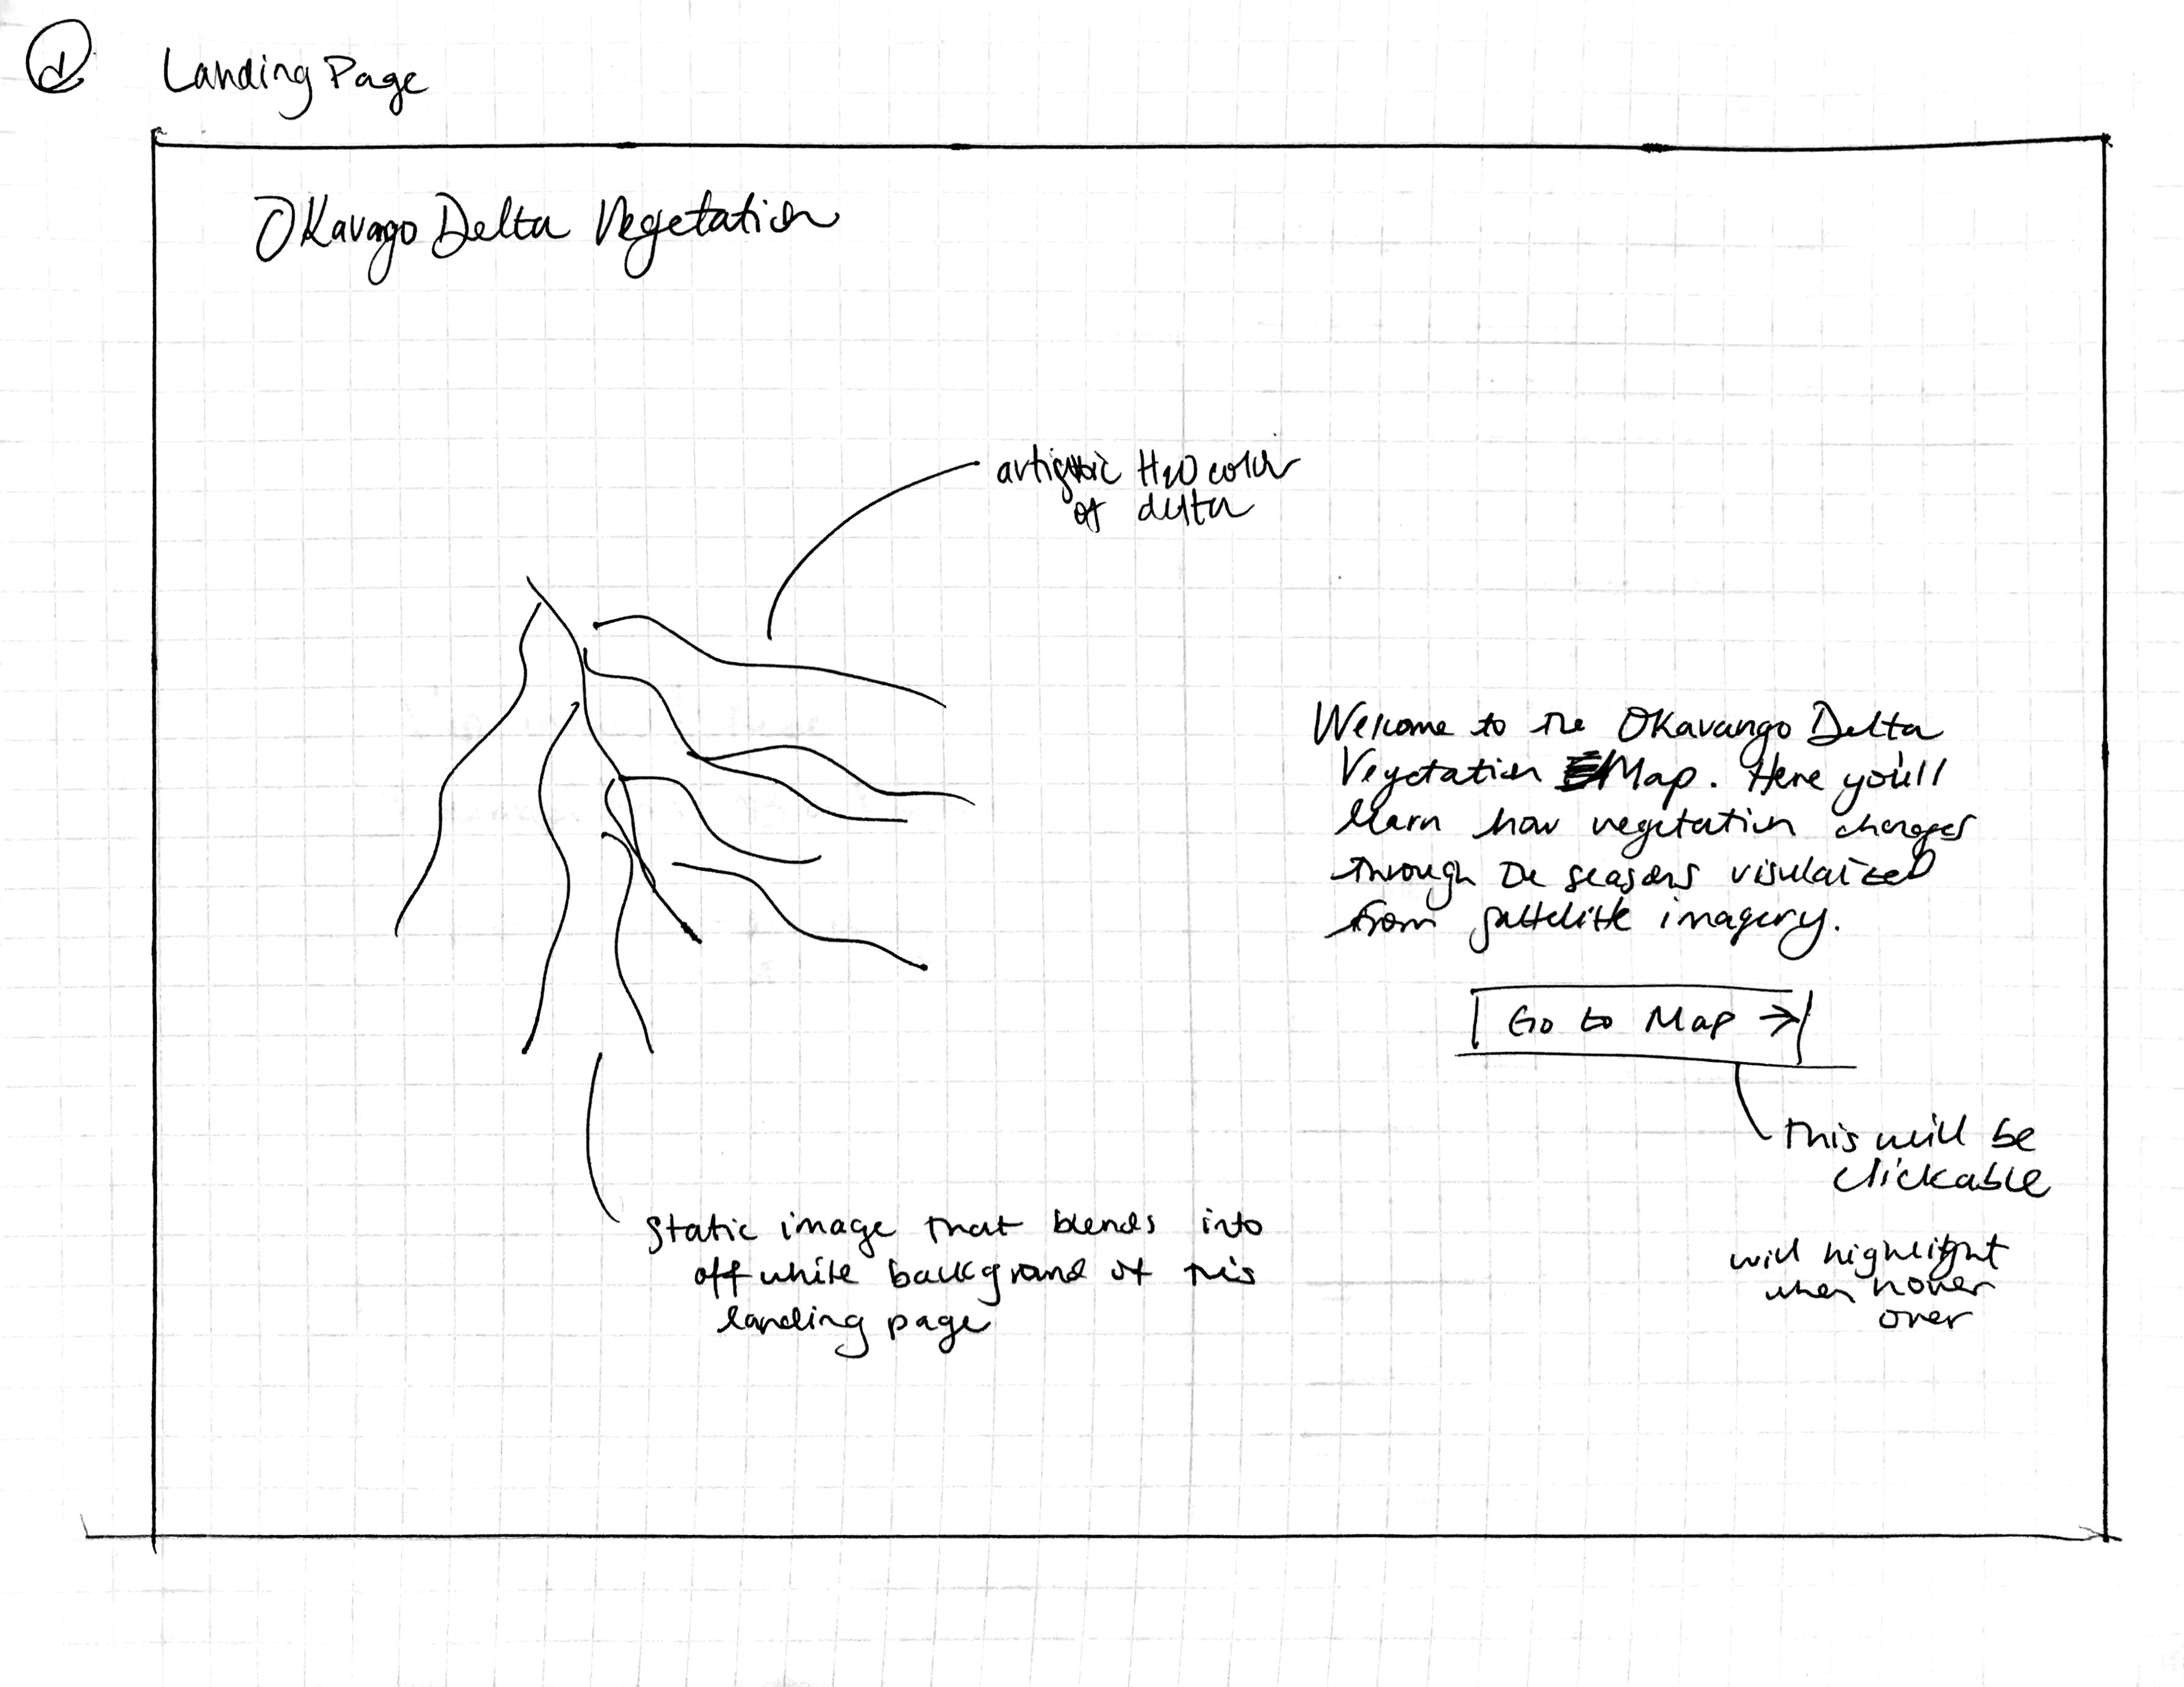 Landing Page
Okavago Delta Vegetation
artistic H2O color
of delta
Welcome to the Okavango Delta
Vegetation Map. Here you'll
learn how vegetation changes
through the seasons visulaized
from sattelite imagery.
Go to Map →
this will be
clickable
will highlight
when hover
over
Static image that blends into
off white background of this
landing page